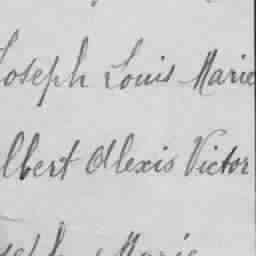 Joseph Louis Marie
lbert Alexis Victor
seph Marie